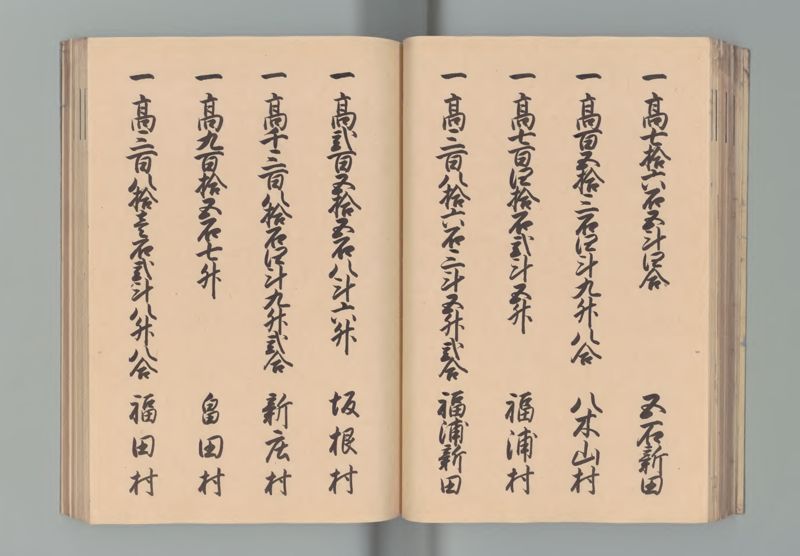 一 高七拾六石五斗四合 五石新田
一 高百五拾三石四斗九升八合 八木山村
一 高七百四拾石弐斗五升 福浦村
一 高三百八拾六石三斗五升弐合 福浦新田
一 高弐百五拾五石八斗六升 坂根村
一 高千三百八拾石四斗九升弐合 新庄村
一 高九百拾五石七升 畠田村
一 高三百八拾壱石弐斗八升八合 福田村